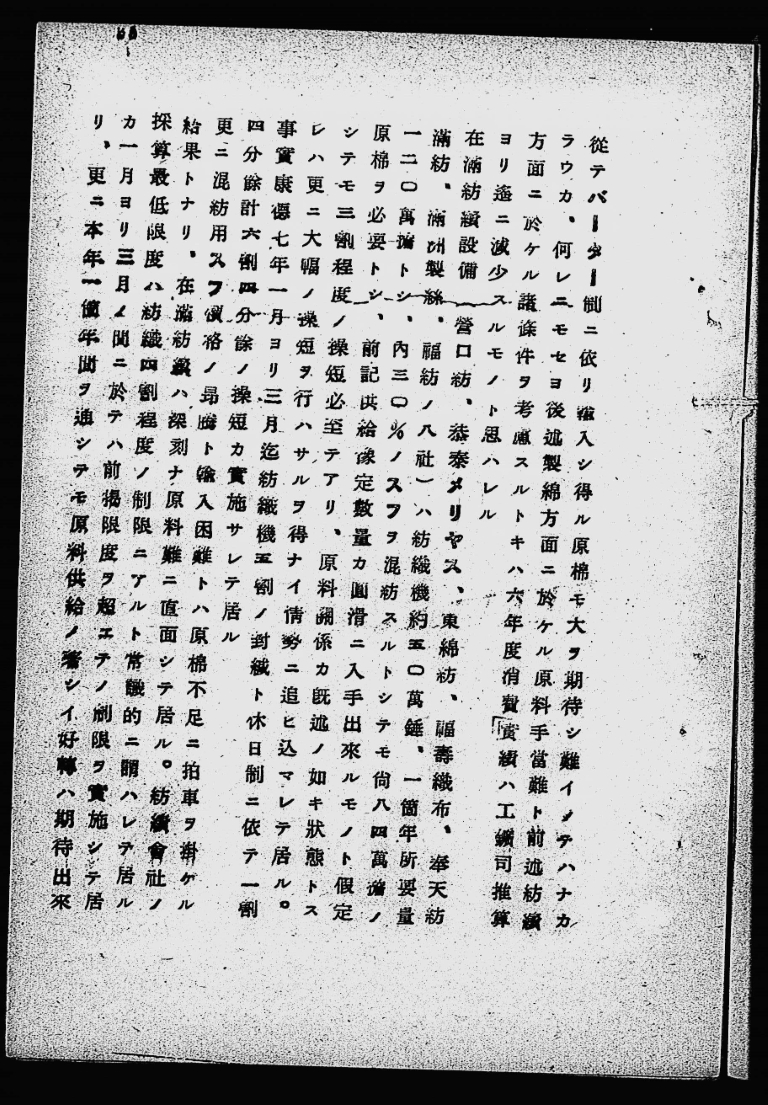 從テバーター制ニ依リ輸入シ得ル原棉モ大ヲ期待シ難イノテハナカ
ラウカ、何レニモセヨ後述製綿方面ニ於ケル原料手當難ト前述紡績
方面ニ於ケル諸條件ヲ考慮スルトキハ六年度消費「實績ハ工鑛司推算
ヨリ遙ニ減少スルモノト思ハレル
在滿紡績設備(營口紡、恭泰メリヤス、東綿紡、福壽織布、奉天紡
滿紡、滿洲製絲、福紡ノ八社)ハ紡織機約五〇萬錘、一箇年所要量
一二〇萬擔トシ、內三〇%ノスフヲ混紡スルトシテモ尙八四萬擔ノ
原棉ヲ必要トシ、前記供給豫定數量カ圓滑ニ入手出來ルモノト假定
シテモ三割程度ノ操短必至テアリ、原料關係カ旣述ノ如キ狀態トス
レハ更ニ大幅ノ操短ヲ行ハサルヲ得ナイ情勢ニ追ヒ込マレテ居ル。
事實康德七年一月ヨリ三月迄紡織機五割ノ封緘ト休日制ニ依テ一割
四分餘計六割四分餘ノ操短カ實施サレテ居ル
更ニ混紡用スフ價格ノ昂騰ト輸入困難トハ原棉不足ニ拍車ヲ掛ケル
結果トナリ、在滿紡績ハ深刻ナ原料難ニ直面シテ居ル。紡績會社ノ
採算最低限度ハ紡織四割程度ノ制限ニアルト常識的ニ謂ハレテ居ル
カ一月ヨリ三月ノ間ニ於テハ前揭限度ヲ超エテノ制限ヲ實施シテ居
リ、更ニ本年一箇年間ヲ通シテモ原料供給ノ著シイ好轉ハ期待出來